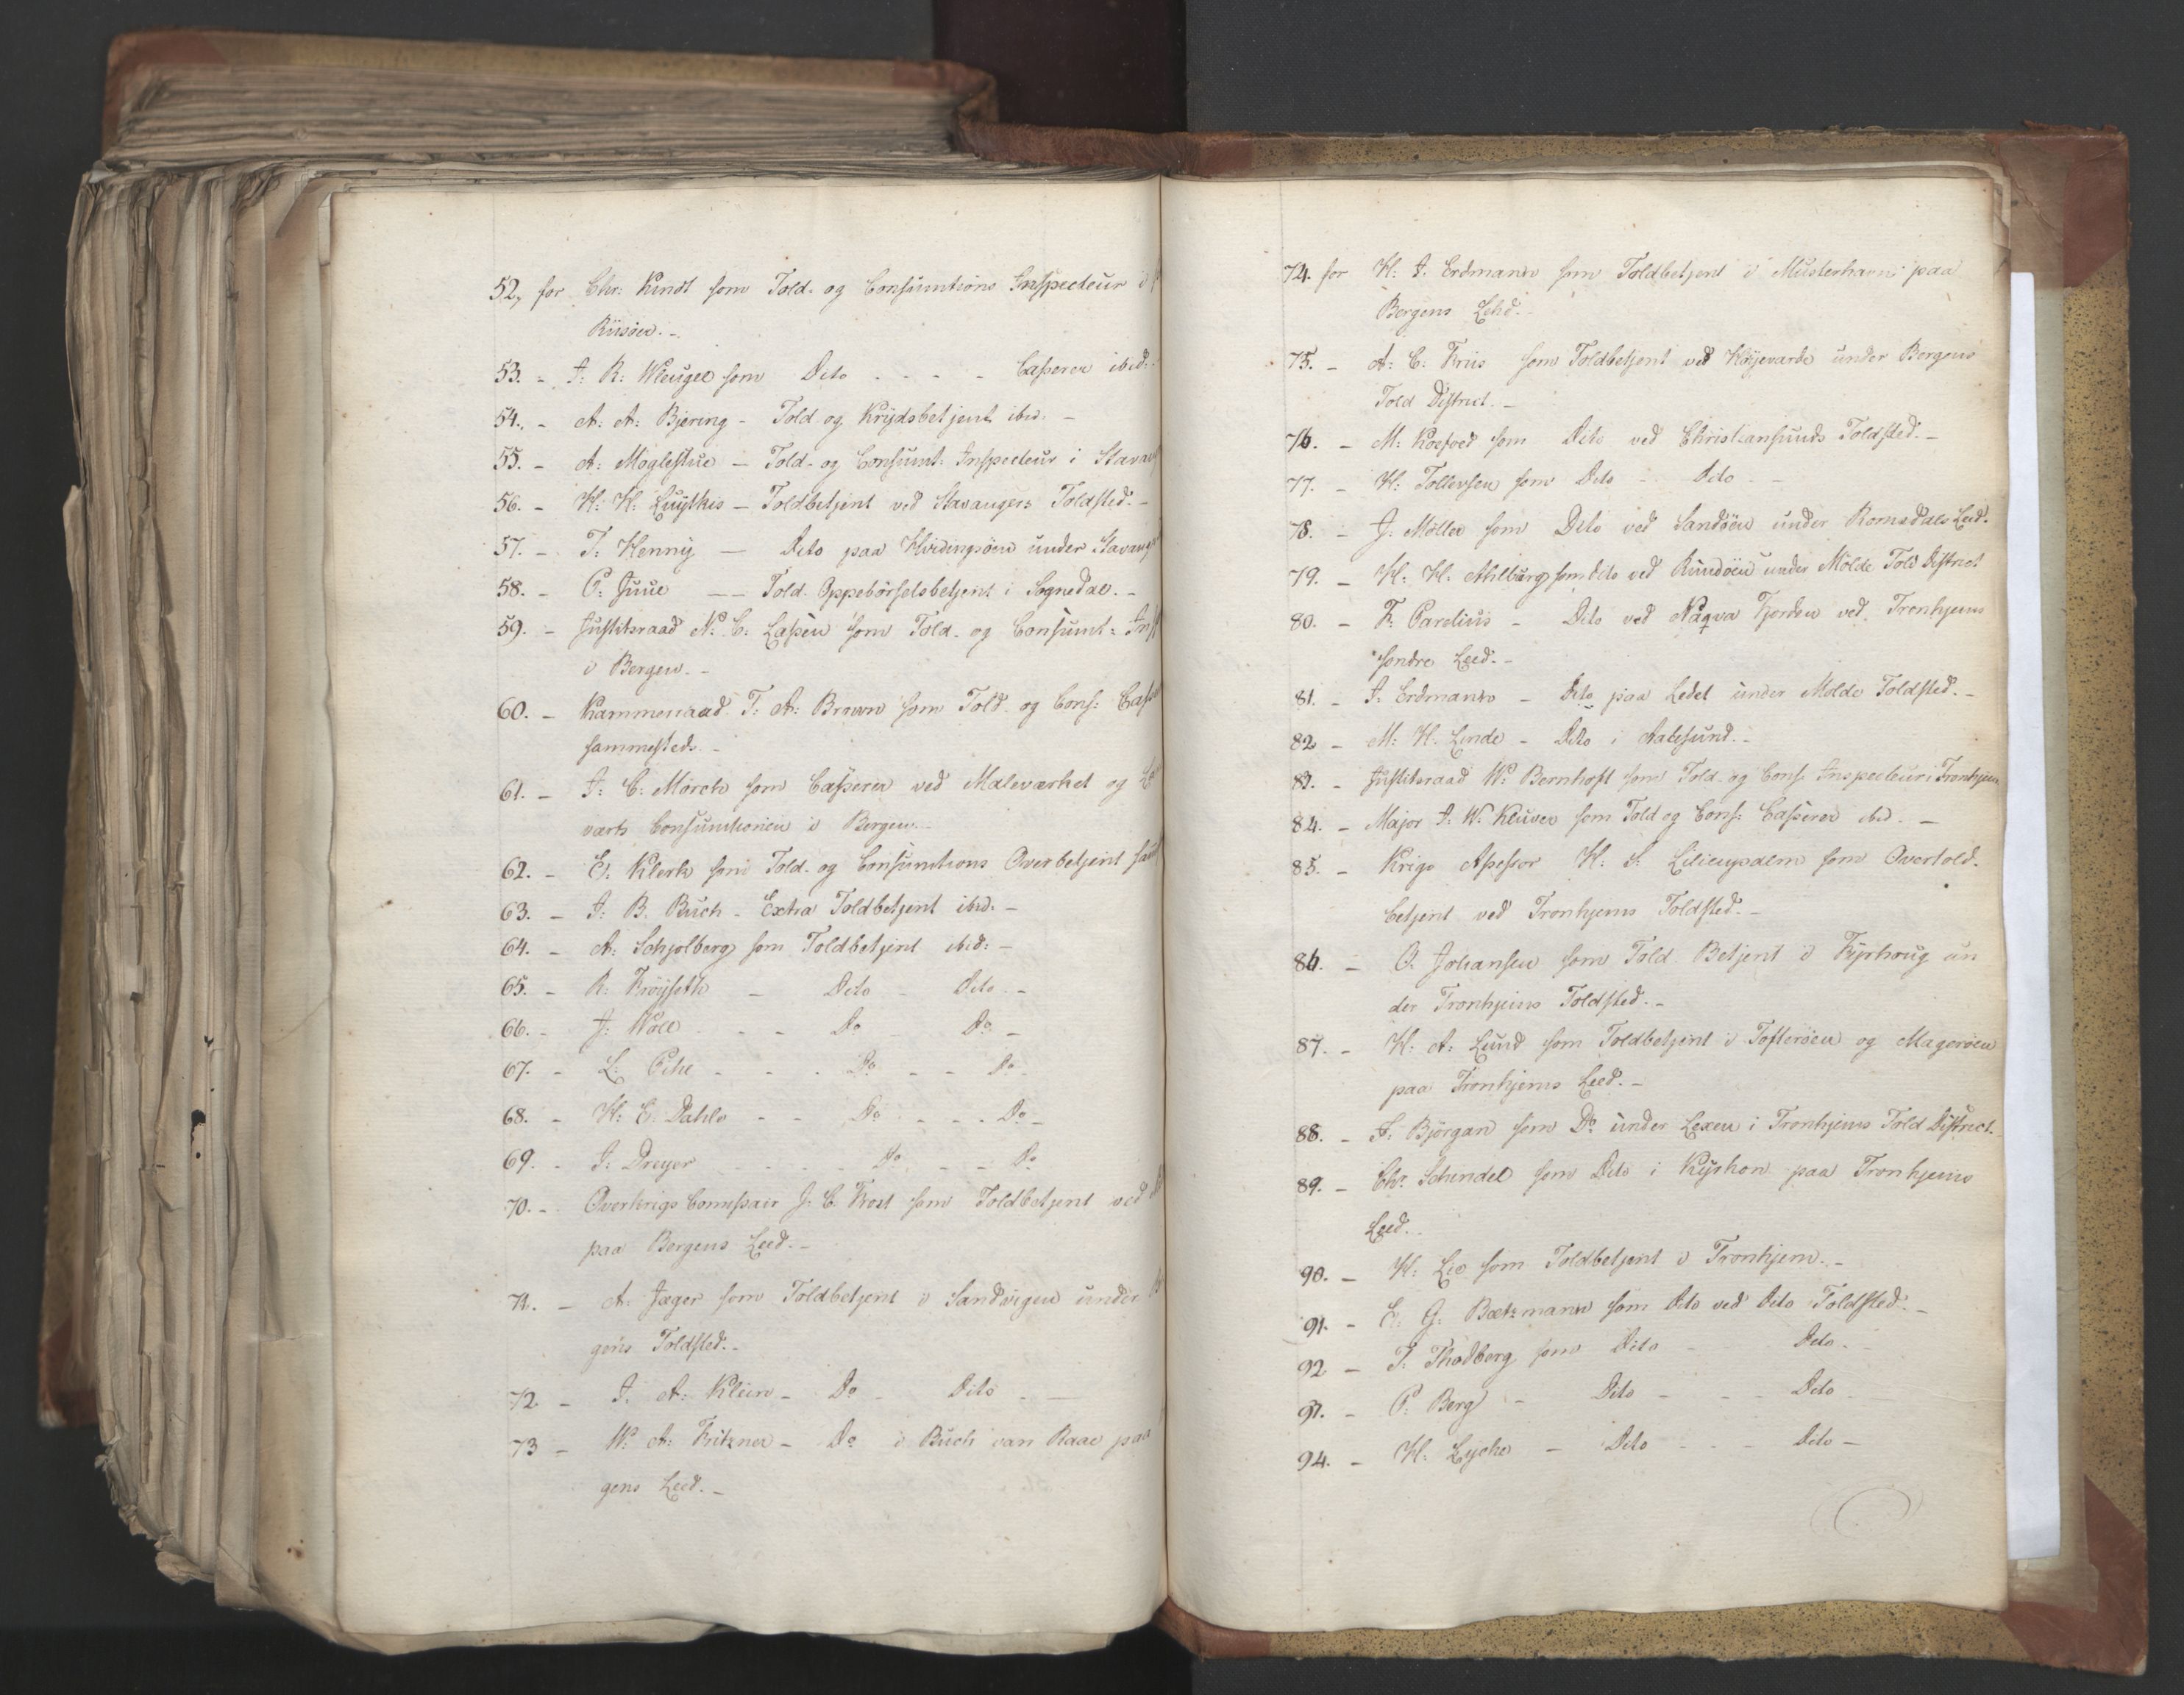 52, for Chr: Kindt som Told- og Consumtions Inspecteur i
Riisöer. -
53. - J: R: Wleugel som Dito - - - - Casserer ibid:
54. - A: A: Bjering - Told- og Krydsbetjent ibid. -
55. - A: Moglestue - Told- og Consumt: Inspecteur i
56. - H: H: Luytkis - Toldbetjent ved Stavangers Toldsted. -
57. - T: Henny - Dito paa Hvidingsöen under
58. - P: Juue - - Told- Oppebörselsbetjent i Sognedal. -
59. - Justitsraad N: C: Lassen som Told- og Consumt:
i Bergen. -
60. - Kammerraad T: A: Bruun som Told- og Cons:
sammesteds. -
61. - J: C: Mörch som Casserer ved Maleværket og
værts Consumtionen i Bergen. -
62. - E. Klerk som Told- og Consumtions Overbetjent
63. - J: B. Buch - Extra Toldbetjent ibid. -
64. - A: Schjolberg som Toldbetjent ibid: -
65. - R: Fröyseth - Dito - Dito. -
66. - J: Wall - - Do Do -
67. - L: Pihl - - - Do - - Do -
68. - H: E. Dahl - - Do - - - Do -
69. - J: Dreyer - - - - Do - - Do
70. - Overkrigs Commissair J: C: Frost som Toldbetjent ved
paa Bergens Leed. -
71. - A: Jæger som Toldbetjent i Sandvigen under
gens Toldsted. -
72 - J. A: Klein - Do - Dito - -
73 - W: A: Fritzner - Do i Buch van Raae paa
gens Leed. -
74. for H: J: Erdmann som Toldbetjent i Musterhavn paa
Bergens Lehd. -
75. - A: C: Friis som Toldbetjent ved Höyevarde under Bergens
Told District. -
76. - M: Koefoed som Dito ved Christiansunds Toldsted. -
77. - H: Tollevsen som Dito - Dito - -
78. - J: Möller som Dito ved Sandöen under Romsdals Leed.
79. - H: H. Ahlburg som dito ved Rundöen under Molde Told District
80. - F: Parelius - Dito ved Fjorden ved Tronhjems
söndre Leed. -
81. - J. Erdmann - Dito paa Ledet under Molde Toldsted. -
82 - M: H. Linde - Dito i Aalesund. -
83. - Justitsraad W: Bernhoft som Told- og Cons: Inspecteur i Tronhjem
84. - Major J. W. Kluver som Told og Cons: Casserer ibid. -
85. - Krigs Assessor H: S: Lilienpalm som Overtold-
betjent ved Tronhjems Toldsted. -
86. - O. Johansen som Told- Betjent i Fyrhoug un
der Tronhjems Toldsted. -
87. - H: A: Lund som Toldbetjent i Tofteröen og Mageröen
paa Tronhjems Leed. -
88. - J: Björgan som Do under Lexen i Tronhjems Told District. -
89. - Chr. Schindel som Dito i Kiyshon paa Tronhjems
Leed. -
90. - H: Lie som Toldbetjent i Tronhjem. -
91. - E: G: Bætzmann som Dito ved Dito Toldsted. -
92 - J: Thodberg som Dito - Dito. -
93. - P: Berg - Dito - - - Dito -
94. - H: Lyche - Dito - - - Dito -